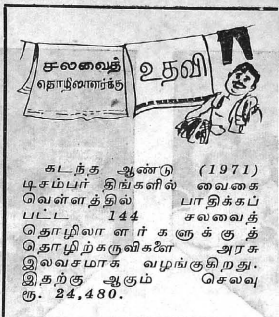 சலவைத்
தொழிலாளர்க்கு
உதவி
கடந்த ஆண்டு (1971)
டிசம்பர் திங்களில் வைகை
வெள்ளத்தில் பாதிக்கப்
பட்ட 144 சலவைத்
தொழிலா ளர் களுக்கு த்
தொழிற்கருவிகளை அரசு
இலவசமாக வழங்குகிறது.
இதற்கு ஆகும் செலவு
ரூ. 24,480.